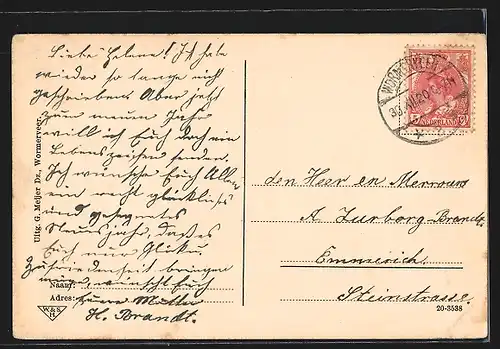 Liebe Helene! Ich habe
wieder so lange nicht
geschrieben. Aber jetzt
zum neuen Jahr
will ich Euch doch ein
Lebenszeichen senden.
Ich wünsche Euch Allen
ein recht glückliches
und gesegnetes
Neues Jahr, daß es
Euch nur Glück u.
Zufriedenheit bringen
möge, wünscht Euch
Eure Mutter
H. Brandt.
Naam:
Adres:
Uitg. G. Meijer Dz., Wormerveer.
W&S
H
WORMERVEER
30.XII.20
NEDERLAND
den Heer en Mevrouw
A. Zurborg-Brandt
Emmerich
Steinstrasse
20-3538